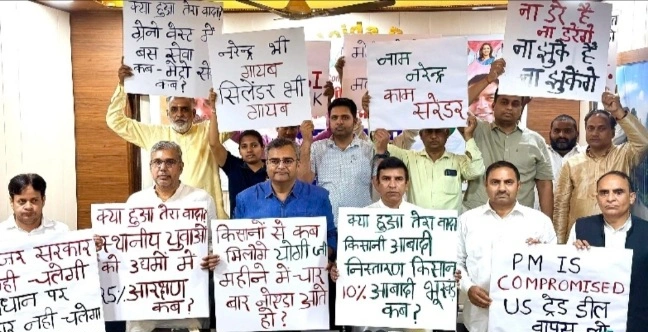 क्या हुआ तेरा वादा
ग्रेनो वेस्ट में
बस सेवा
कब - मेट्रो से
कब?
नरेन्द्र भी
गायब
सिलेंडर भी
गायब
नाम
नरेन्द्र
काम
सरेंडर
ना डरे है
ना डरेंगे
ना झुके है
ना झुकेंगे
सरकार
नही चलेगी
पर
नही चलेगा
क्या हुआ तेरा वादा
स्थानीय युवाओं
को उद्यमों में
आरक्षण
कब?
किसानों से कब
मिलोगे योगी जी
महीने में-चार
बार नोएडा आते
हो?
क्या हुआ तेरा वादा
किसानी आबादी
निस्तारण किसान
10% आबादी भूखंड
कब?
PM IS
COMPROMISED
US ट्रेड डील